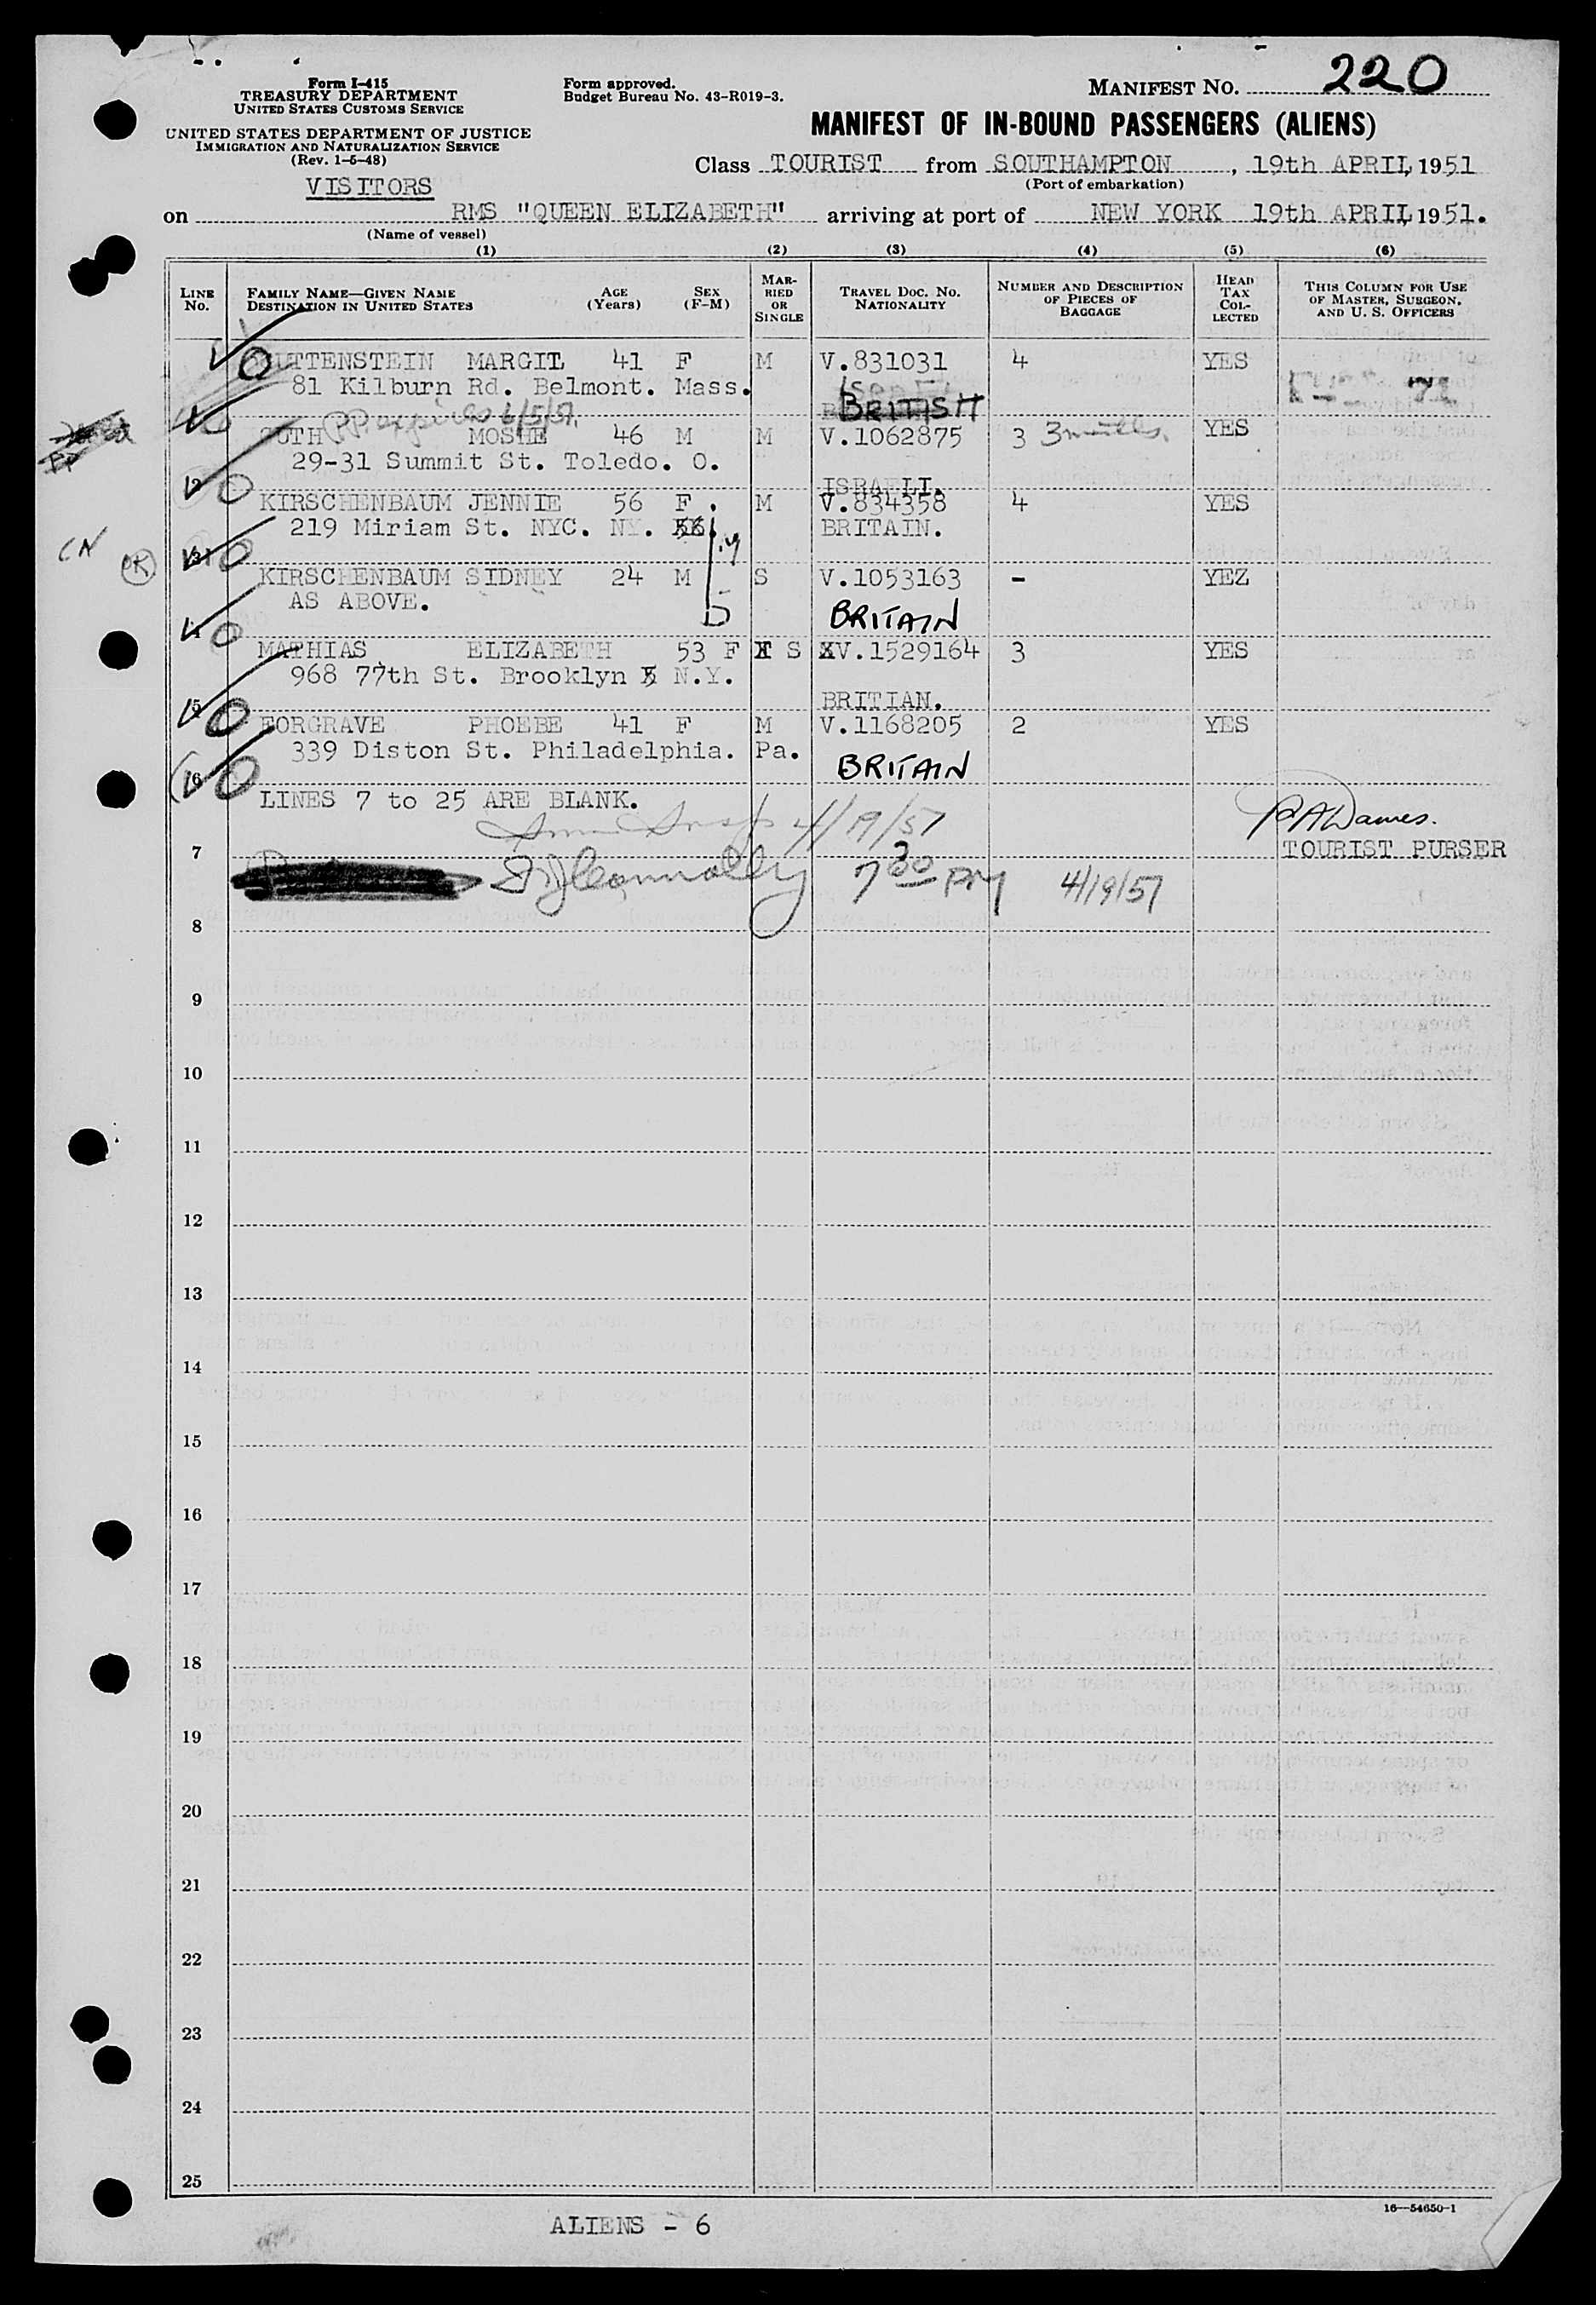 Form I-415
TREASURY DEPARTMENT
UNITED STATES CUSTOMS SERVICE
UNITED STATES DEPARTMENT OF JUSTICE
IMMIGRATION AND NATURALIZATION SERVICE
(Rev. 1-5-48)
Form approved.
Budget Bureau No. 43-R019-3.
MANIFEST NO. 220
MANIFEST OF IN-BOUND PASSENGERS (ALIENS)
Class TOURIST from SOUTHAMPTON, 19th APRIL, 1951
(Port of embarkation)
VISITORS
on RMS "QUEEN ELIZABETH" arriving at port of NEW YORK 19th APRIL, 1951.
(Name of vessel)
(1) (2) (3) (4) (5) (6)
LINE No. FAMILY NAME—GIVEN NAME DESTINATION IN UNITED STATES AGE (Years) SEX (F-M) MARRIED OR SINGLE TRAVEL DOC. NO. NATIONALITY NUMBER AND DESCRIPTION OF PIECES OF BAGGAGE HEAD TAX COLLECTED THIS COLUMN FOR USE OF MASTER, SURGEON, AND U. S. OFFICERS
MARGIT 41 F M V.831031 4 YES
81 Kilburn Rd. Belmont. Mass.
BRITISH
PP expires 6/5/51
MOSHE 46 M M V.1062875 3 3 YES
29-31 Summit St. Toledo. O.
ISRAELI.
2
KIRSCHENBAUM JENNIE 56 F. M V.834358 4 YES
219 Miriam St. NYC. NY. 56. BRITAIN.
CN OK 3
KIRSCHENBAUM SIDNEY 24 M S V.1053163 - YEZ
AS ABOVE. BRITAIN
4
MATHIAS ELIZABETH 53 F S V.1529164 3 YES
968 77th St. Brooklyn N.Y.
BRITIAN.
5
FORGRAVE PHOEBE 41 F M V.1168205 2 YES
339 Diston St. Philadelphia. Pa.
BRITAIN
6
LINES 7 to 25 ARE BLANK.
Imm Insp 4/19/51
TOURIST PURSER
7
Connolly 7 30 PM 4/19/51
8
9
10
11
12
13
14
15
16
17
18
19
20
21
22
23
24
25
16—54650-1
ALIENS - 6